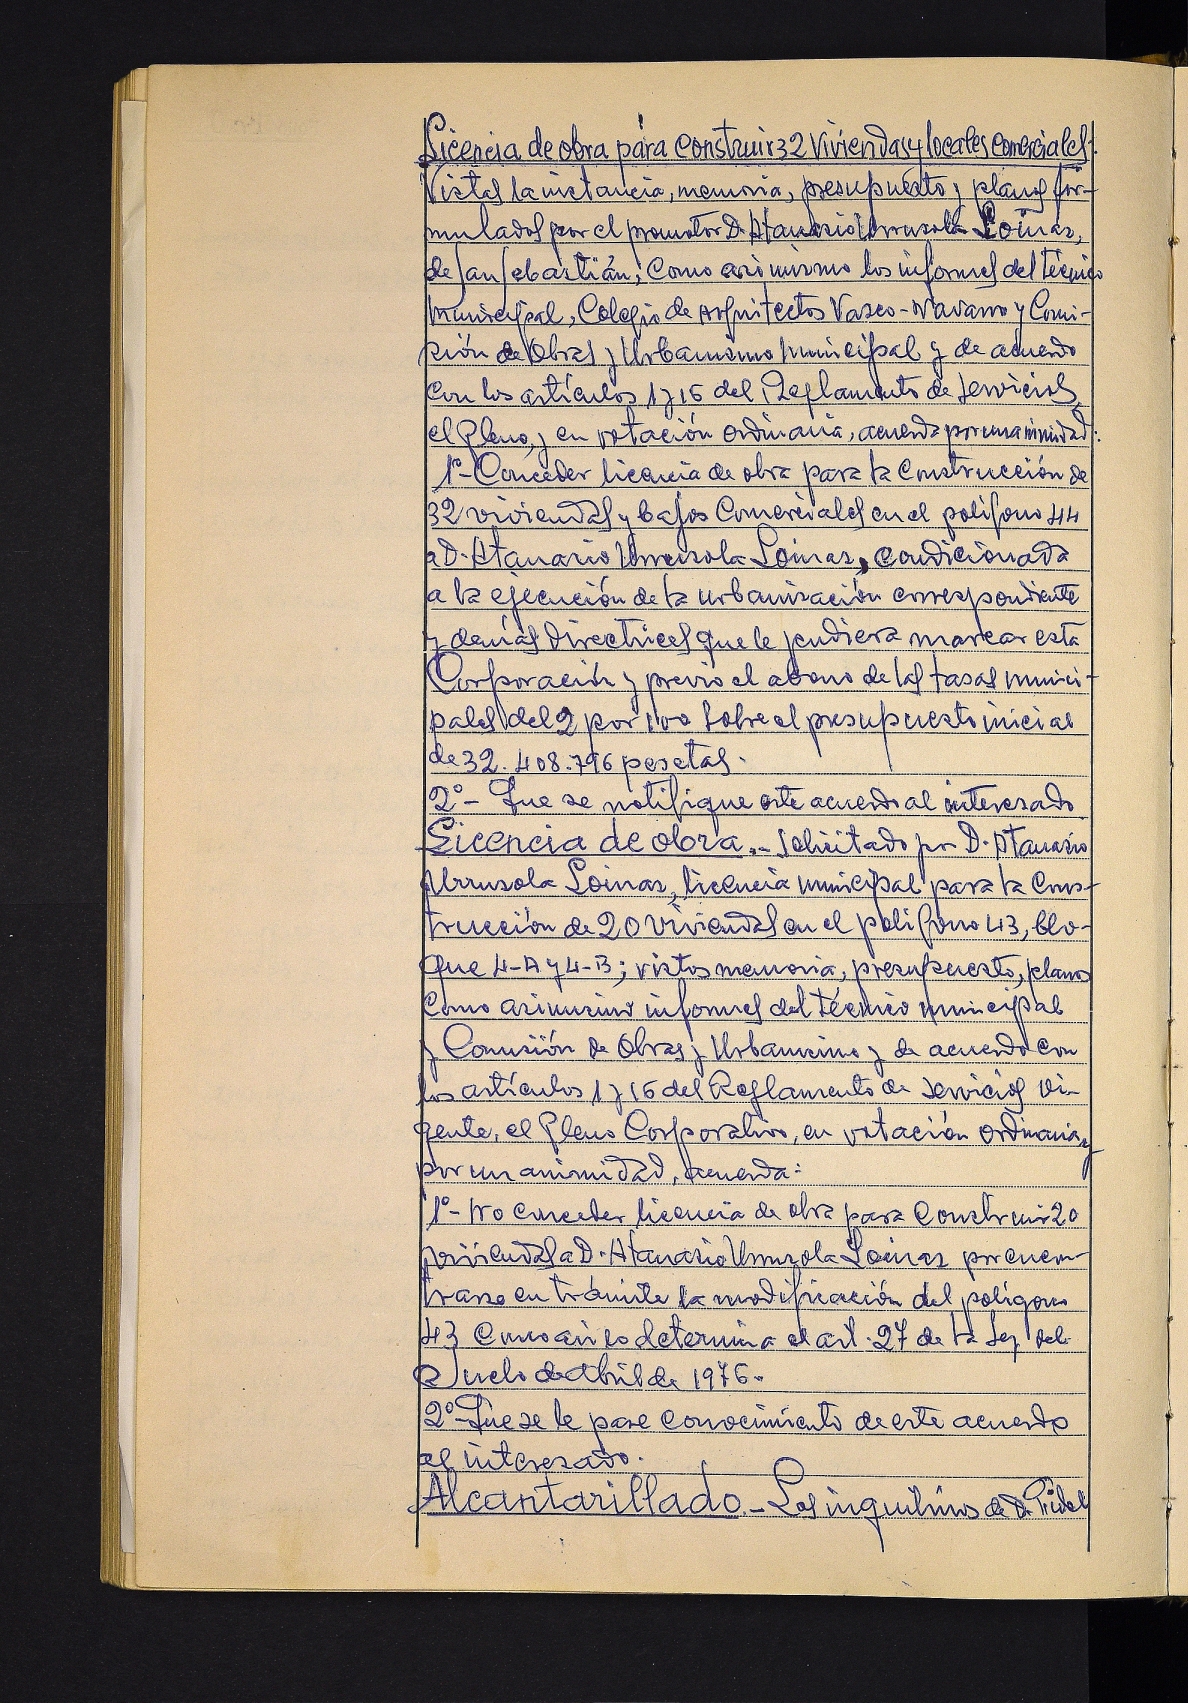 Licencia de obra para construir 32 viviendas y locales comerciales.
Vistas la instancia, memoria, presupuesto y planos for-
mulados por el promotor D. Atanasio Urruzola Loinaz,
de San Sebastián; como asimismo los informes del técnico
municipal, Colegio de Arquitectos Vasco-Navarro y Comi-
sión de Obras y Urbanismo Municipal y de acuerdo
con los artículos 1 y 16 del Reglamento de Servicios,
el Pleno, y en votación ordinaria, acuerda por unanimidad:
1º- Conceder licencia de obra para la construcción de
32 viviendas y bajos comerciales en el polígono 44
a D. Atanasio Urruzola Loinaz, condicionada
a la ejecución de la urbanización correspondiente
y demás directrices que le pudiera marcar esta
Corporación y previo el abono de las tasas munici-
pales del 2 por 100 sobre el presupuesto inicial
de 32.408.796 pesetas.
2º- Que se notifique este acuerdo al interesado
Licencia de obra.- Solicitado por D. Atanasio
Urruzola Loinaz, licencia municipal para la cons-
trucción de 20 viviendas en el polígono 43, blo-
que 4-A y 4-B; vistos memoria, presupuesto, planos
como asimismo informes del técnico municipal
y Comisión de Obras y Urbanismo y de acuerdo con
los artículos 1 y 16 del Reglamento de Servicios vi-
gente, el Pleno Corporativo, en votación ordinaria y
por unanimidad, acuerda:
1º- No conceder licencia de obra para construir 20
viviendas a D. Atanasio Urruzola Loinaz por encon-
trarse en trámite la modificación del polígono
43 como así lo determina el art. 27 de la Ley del
Suelo de Abril de 1976.
2º- Que se le pase conocimiento de este acuerdo
al interesado.
Alcantarillado.- Los inquilinos de D. Fidel